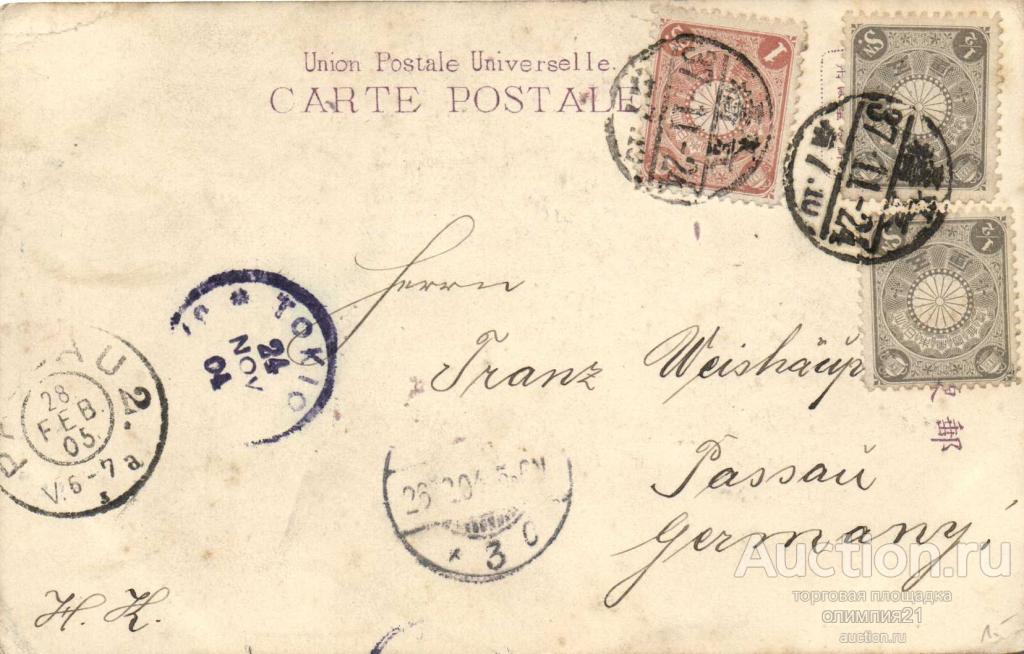 Union Postale Universelle.
CARTE POSTALE
1
1/2
Sn.
1/2
37-11-24
37-11-24
Herrn
Franz Weishäup
Passau
Germany,
TOKIO
24
NOV
04
PASSAU 2.
28
FEB.
05
V.6-7a
* 3 C
郵
H. K.
Auction.ru
торговая площадка
олимпия21
auction.ru